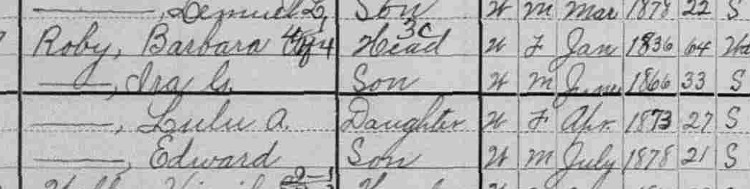 ——, Lemuel L, Son W M Mar 1878 22 S
Roby, Barbara Head W F Jan 1836 64 Wd
——, Ira G. Son W M June 1866 33 S
——, Lulu A. Daughter W F Apr. 1873 27 S
——, Edward Son W M July 1878 21 S